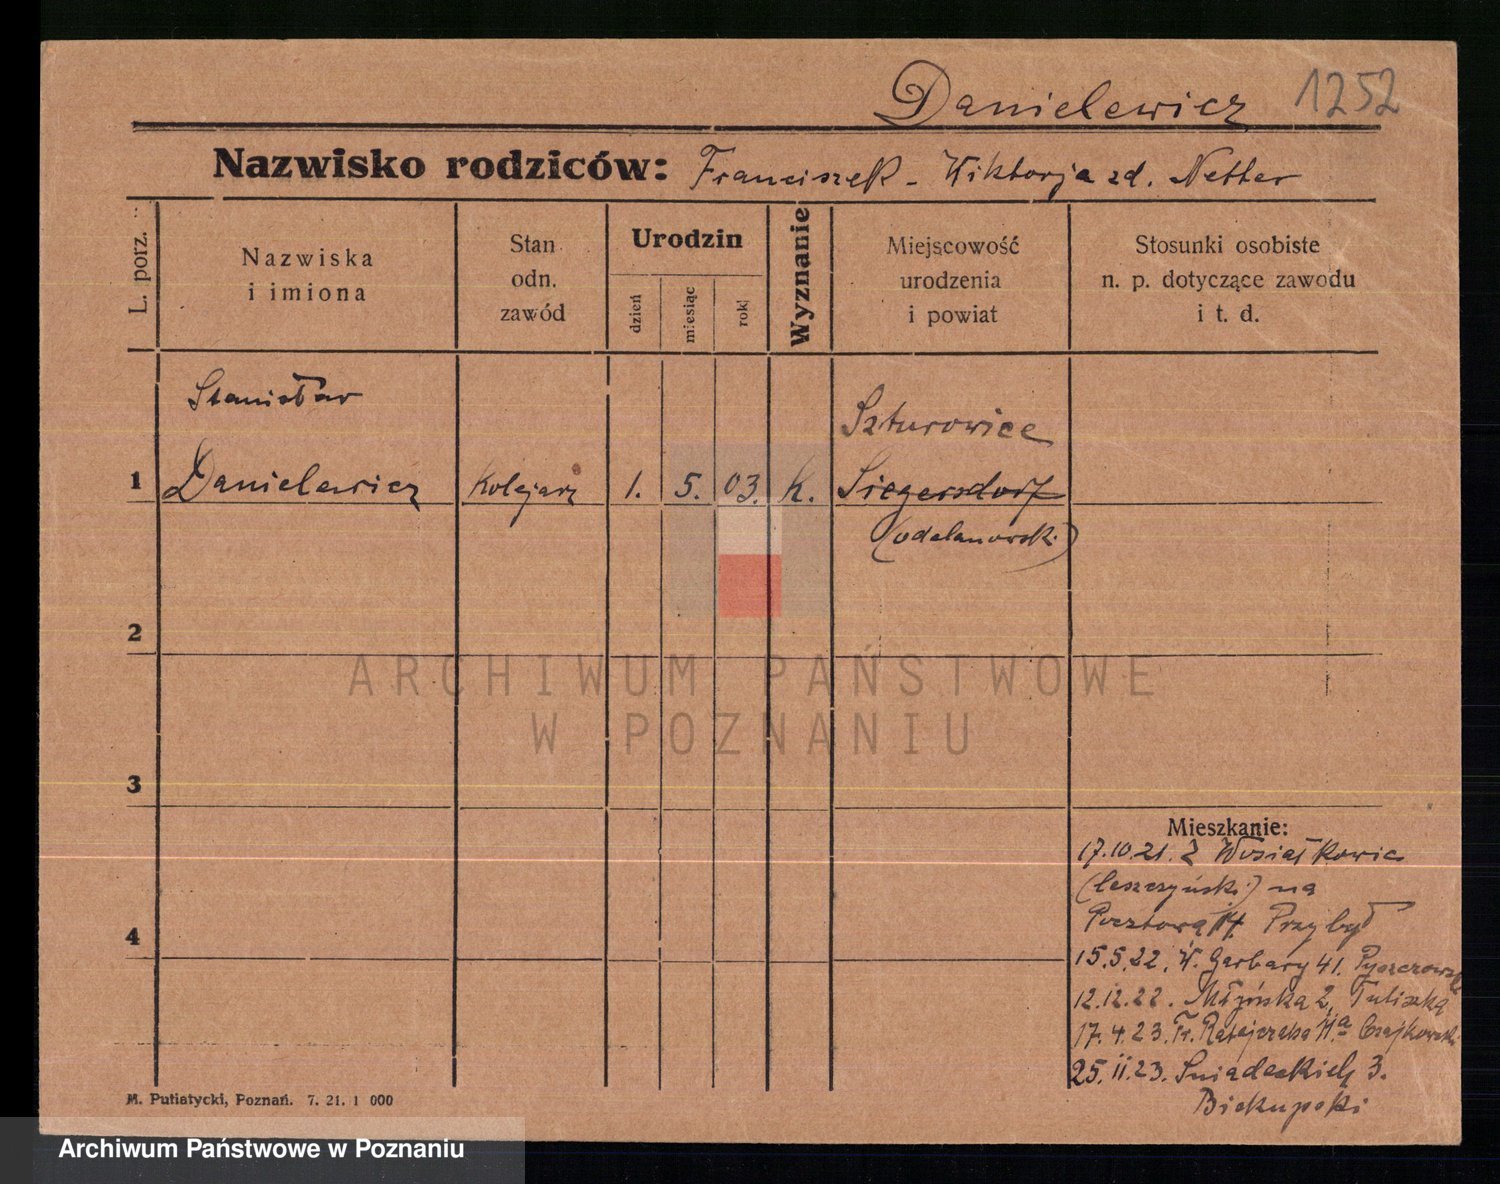 Danielewicz 1252
Nazwisko rodziców: Franciszek - Wiktorja zd. Netter
L. porz.
Nazwiska
i imiona
Stan
odn.
zawód
Urodzin
dzień
miesiąc
rok
Wyznanie
Miejscowość
urodzenia
i powiat
Stosunki osobiste
n. p. dotyczące zawodu
i t. d.
Stanisław
Szturowice
1 Danielewicz Kolejarz 1. 5. 03. k. Siegersdorf
(odolanowski)
2
ARCHIWUM PAŃSTWOWE
W POZNANIU
3
Mieszkanie:
17.10.21. Z
(leszczyński) na
4 Pocztową 14. Przybył
15.5.22. W. Garbary 41.
12.12.22. Młyńska 2, Tuliszka
17.4.23. Fr. Ratajczaka 11a Czajkowski
25.11.23. Śniadeckich 3.
Biskupski
M. Putiatycki, Poznań. 7. 21. 1 000
Archiwum Państwowe w Poznaniu